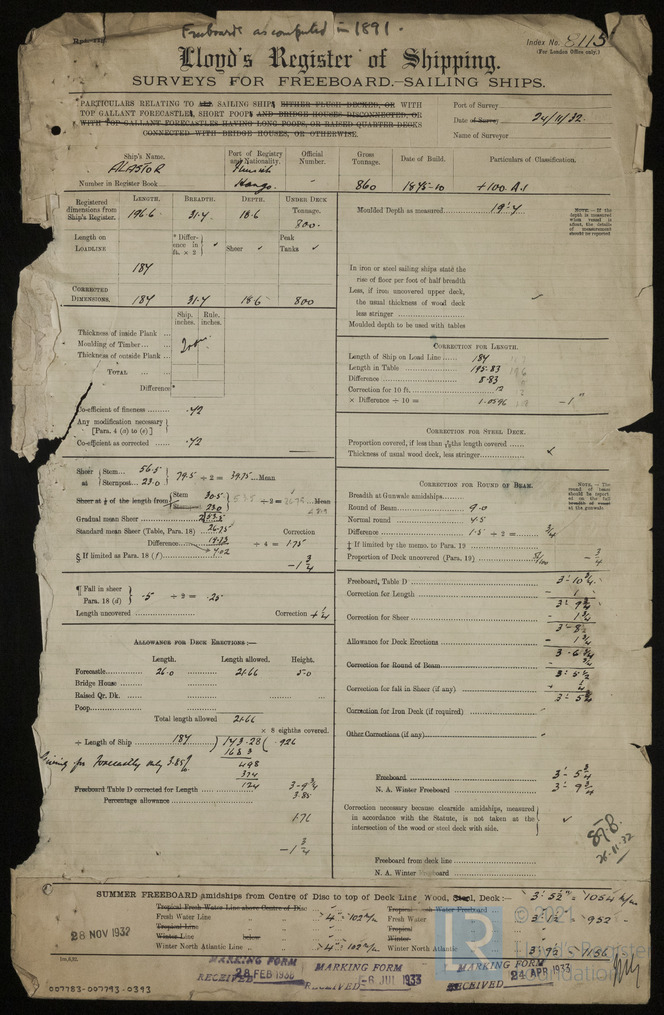 Freeboards as computed in 1891.
Index No. 8115
(For London Office only.)
Lloyd's Register of Shipping.
SURVEYS FOR FREEBOARD.—SAILING SHIPS.
PARTICULARS RELATING TO ALL SAILING SHIPS EITHER FLUSH DECKED, OR WITH
TOP GALLANT FORECASTLES, SHORT POOPS AND BRIDGE HOUSES DISCONNECTED, OR
WITH TOP GALLANT FORECASTLES HAVING LONG POOPS, OR RAISED QUARTER DECKS
CONNECTED WITH BRIDGE HOUSES, OR OTHERWISE.
Port of Survey
Date of Survey 24/11/32
Name of Surveyor
Ship's Name. Port of Registry and Nationality. Official Number. Gross Tonnage. Date of Build. Particulars of Classification.
ALASTOR Finnish
Number in Register Book Hango. 860 1875-10 +100 A.1
Registered dimensions from Ship's Register. LENGTH. BREADTH. DEPTH. UNDER DECK TONNAGE.
196.6 31.7 18.6 800.
Length on LOADLINE 187 * Difference in ft. × 2 Sheer Peak Tanks
CORRECTED DIMENSIONS. 187 31.7 18.6 800
Moulded Depth as measured 19'-7
In iron or steel sailing ships state the
rise of floor per foot of half breadth
Less, if iron uncovered upper deck,
the usual thickness of wood deck
less stringer
Moulded depth to be used with tables
Ship, inches. Rule, inches.
Thickness of inside Plank
Moulding of Timber
Thickness of outside Plank
TOTAL
Difference*
Co-efficient of fineness .72
Any modification necessary
[Para. 4 (a) to (e)]
Co-efficient as corrected .72
CORRECTION FOR LENGTH.
Length of Ship on Load Line 187
Length in Table 195.83
Difference 8.83
Correction for 10 ft. 1.2
× Difference ÷ 10 = 1.0596 -1"
CORRECTION FOR STEEL DECK.
Proportion covered, if less than 7/10ths length covered
Thickness of usual wood deck, less stringer
Sheer at Stem 56.5
Sternpost 23.0 79.5 ÷ 2 = 39.75 Mean
Sheer at 1/8 of the length from Stem 30.5
Sternpost 23.0 53.5 ÷ 2 = 26.75 Mean
Gradual mean Sheer
Standard mean Sheer (Table, Para. 18) 26.75 Correction
Difference ÷ 4 = 1.75
§ If limited as Para. 18 (f) 7.02 -1 3/4
¶ Fall in sheer
Para. 18 (d) .5 ÷ 2 = .25
Length uncovered Correction + 1/4
CORRECTION FOR ROUND OF BEAM.
Breadth at Gunwale amidships
Round of Beam 9.0
Normal round 7.5
Difference 1.5 ÷ 2 = 3/4
‡ If limited by the memo. to Para. 19
Proportion of Deck uncovered (Para. 19) - 3/4
ALLOWANCE FOR DECK ERECTIONS:—
Length. Length allowed. Height.
Forecastle 26.0 21.66 5.0
Bridge House
Raised Qr. Dk.
Poop
Total length allowed 21.66
× 8 eighths covered.
÷ Length of Ship 187 ) 173.28 ( .926
1683
498
374
124
Giving for Forecastle only 3.85%
Freeboard Table D corrected for Length 3-9 3/4
Percentage allowance 3.85
1.76
-1 3/4
Freeboard, Table D 3'-10 3/4
Correction for Length - 1
3'-9 3/4
Correction for Sheer - 1 3/4
3'-8
Allowance for Deck Erections - 1 3/4
3'-6 1/4
Correction for Round of Beam - 3/4
3'-5 1/2
Correction for fall in Sheer (if any) + 1/4
3'-5 3/4
Correction for Iron Deck (if required)
Other Corrections (if any)
Freeboard 3'-5 3/4
N. A. Winter Freeboard 3'-9 3/4
Correction necessary because clearside amidships, measured
in accordance with the Statute, is not taken at the
intersection of the wood or steel deck with side.
Freeboard from deck line
N. A. Winter Freeboard
26-11-32
SUMMER FREEBOARD amidships from Centre of Disc to top of Deck Line, Wood, Steel, Deck:— 3'-5 1/2" = 1054 m/m
Tropical Fresh Water Line above Centre of Disc Tropical Fresh Water Freeboard
Fresh Water Line 4" = 102 m/m Fresh Water 3'-1 1/2 952
Tropical Line Tropical
Winter Line below Winter
Winter North Atlantic Line 4" = 102 m/m Winter North Atlantic 3'-9 1/2 1156
28 NOV 1932
MARKING FORM RECEIVED 28 FEB 1933
MARKING FORM RECEIVED -6 JUL 1933
MARKING FORM RECEIVED 24 APR 1933
LR © 2021 Lloyd's Register Foundation
007783-007793-0393